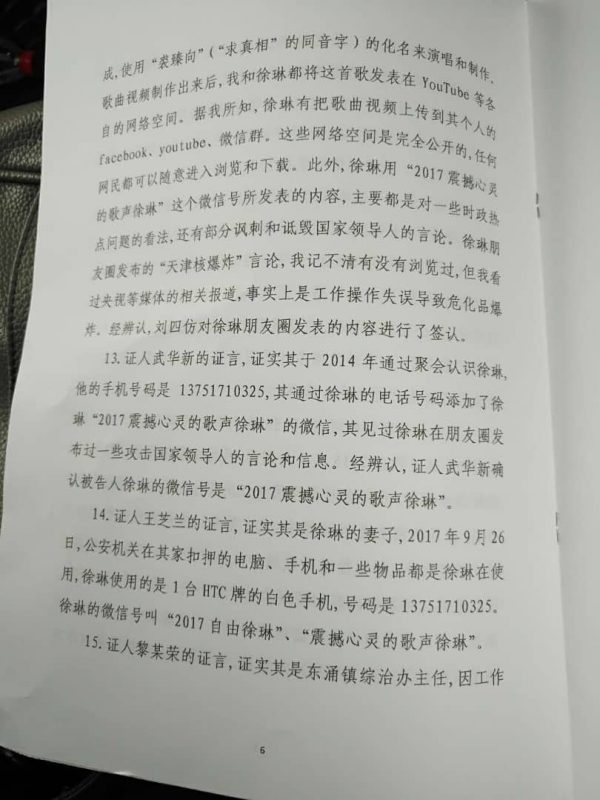 成,使用“裘臻向”(“求真相”的同音字)的化名来演唱和制作、
歌曲视频制作出来后,我和徐琳都将这首歌发表在 YouTube 等各
自的网络空间。据我所知,徐琳有把歌曲视频上传到其个人的
facebook、youtube、微信群。这些网络空间是完全公开的,任何
网民都可以随意进入浏览和下载。此外,徐琳用“2017 震撼心灵
的歌声徐琳”这个微信号所发表的内容,主要都是对一些时政热
点问题的看法,还有部分讽刺和诋毁国家领导人的言论。徐琳朋
友圈发布的“天津核爆炸”言论,我记不清有没有浏览过,但我看
过央视等媒体的相关报道,事实上是工作操作失误导致危化品爆
炸。经辨认,刘四仿对徐琳朋友圈发表的内容进行了签认。
13.证人武华新的证言,证实其于 2014 年通过聚会认识徐琳,
他的手机号码是 13751710325,其通过徐琳的电话号码添加了徐
琳“2017 震撼心灵的歌声徐琳”的微信,其见过徐琳在朋友圈发
布过一些攻击国家领导人的言论和信息。经辨认,证人武华新确
认被告人徐琳的微信号是“2017 震撼心灵的歌声徐琳”。
14.证人王芝兰的证言,证实其是徐琳的妻子,2017 年 9 月 26
日,公安机关在其家扣押的电脑、手机和一些物品都是徐琳在使
用,徐琳使用的是 1 台 HTC 牌的白色手机,号码是 13751710325。
徐琳的微信号叫“2017 自由徐琳”、“震撼心灵的歌声徐琳”。
15.证人黎某荣的证言,证实其是东涌镇综治办主任,因工作
6